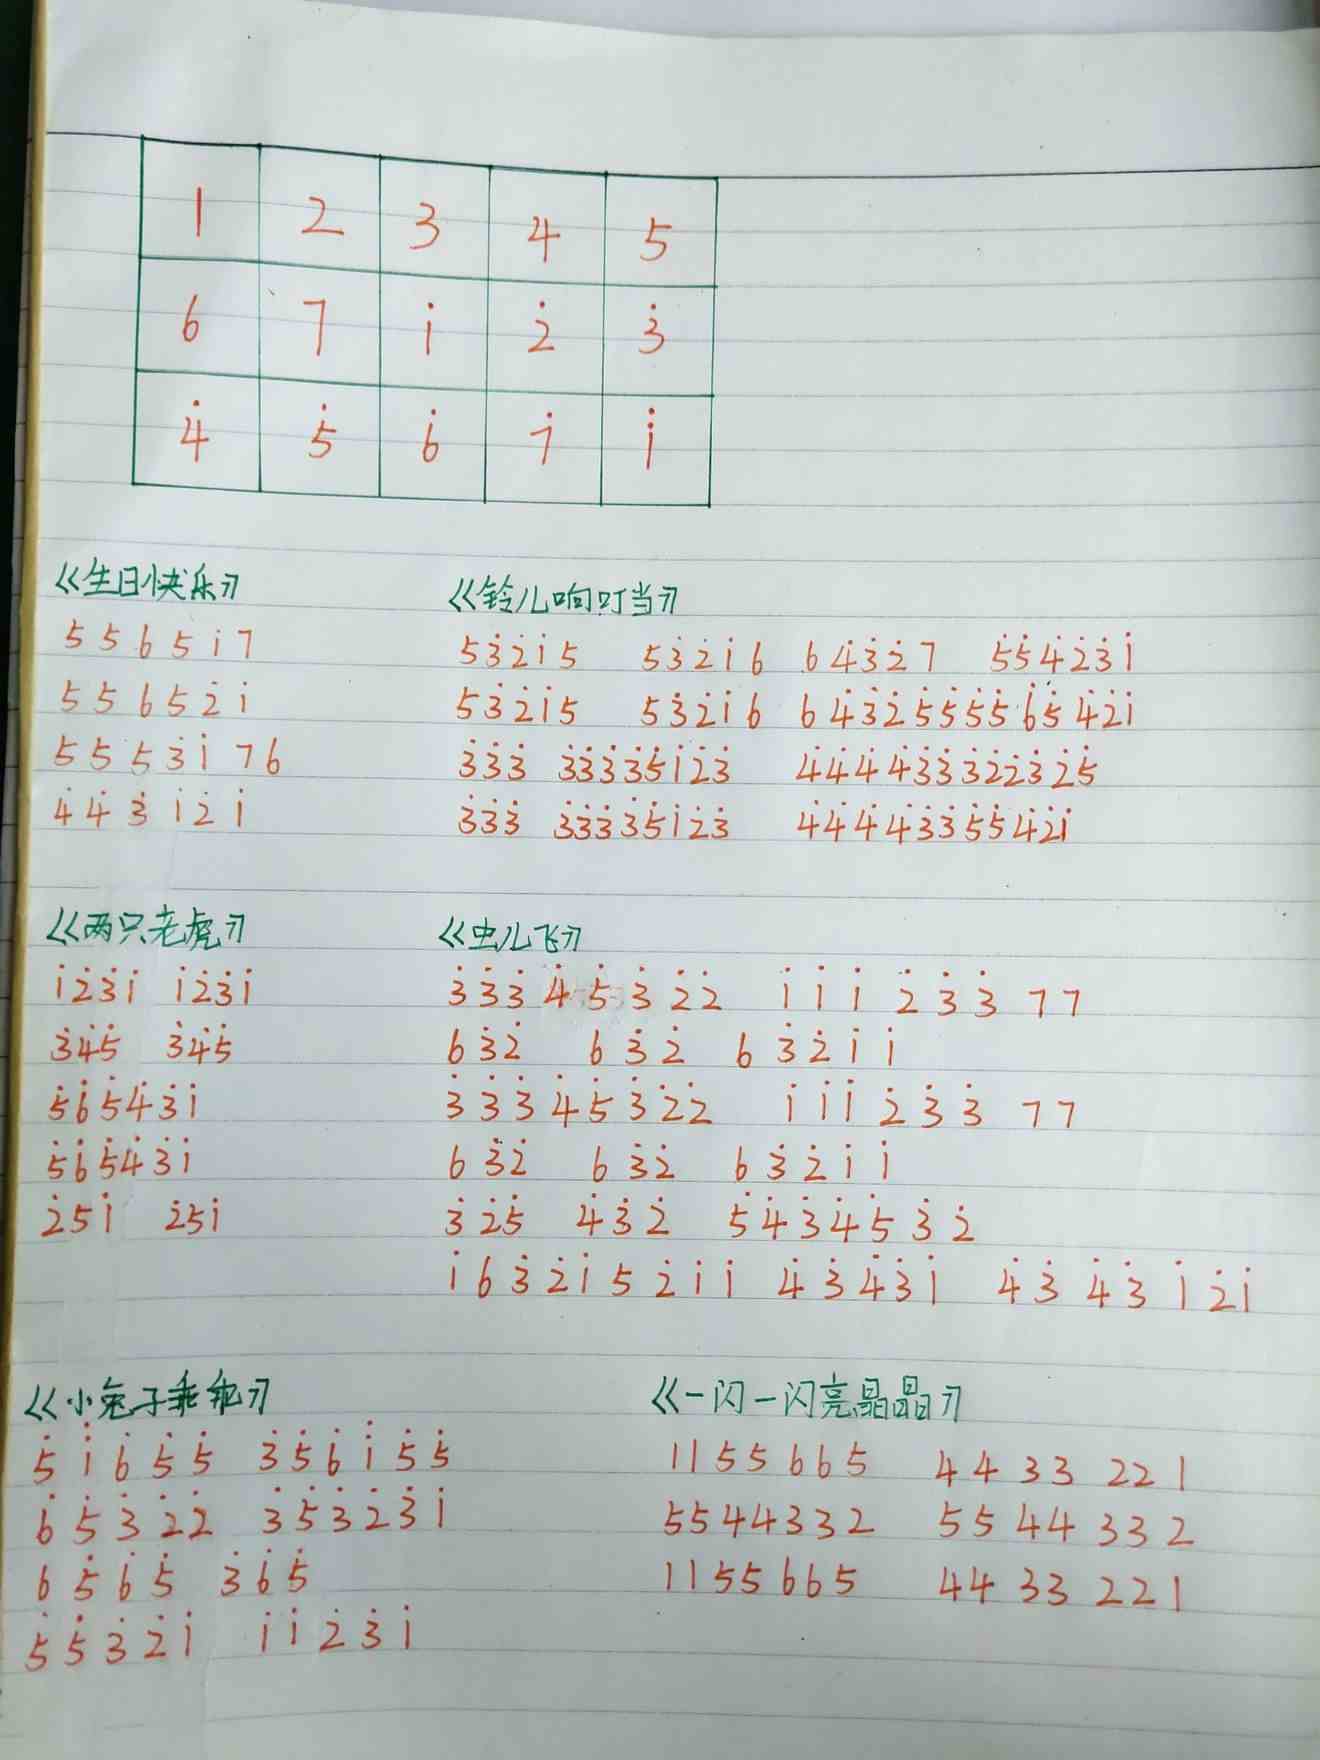 1 2 3 4 5
6 7 1̇ 2̇ 3̇
4̇ 5̇ 6̇ 7̇ 1̈
《生日快乐》
5 5 6 5 1̇ 7
5 5 6 5 2̇ 1̇
5 5 5̇ 3̇ 1̇ 7 6
4̇ 4̇ 3̇ 1̇ 2̇ 1̇
《铃儿响叮当》
5 3̇ 2̇ 1̇ 5 5 3̇ 2̇ 1̇ 6 6 4̇ 3̇ 2̇ 7 5̇ 5̇ 4̇ 2̇ 3̇ 1̇
5 3̇ 2̇ 1̇ 5 5 3̇ 2̇ 1̇ 6 6 4̇ 3̇ 2̇ 5̇ 5̇ 5̇ 5̇ 6̇ 5̇ 4̇ 2̇ 1̇
3̇ 3̇ 3̇ 3̇ 3̇ 3̇ 3̇ 5̇ 1̇ 2̇ 3̇ 4̇ 4̇ 4̇ 4̇ 3̇ 3̇ 3̇ 2̇ 2̇ 3̇ 2̇ 5̇
3̇ 3̇ 3̇ 3̇ 3̇ 3̇ 3̇ 5̇ 1̇ 2̇ 3̇ 4̇ 4̇ 4̇ 4̇ 3̇ 3̇ 5̇ 5̇ 4̇ 2̇ 1̇
《两只老虎》
1̇ 2̇ 3̇ 1̇ 1̇ 2̇ 3̇ 1̇
3̇ 4̇ 5̇ 3̇ 4̇ 5̇
5̇ 6̇ 5̇ 4̇ 3̇ 1̇
5̇ 6̇ 5̇ 4̇ 3̇ 1̇
2̇ 5 1̇ 2̇ 5 1̇
《虫儿飞》
3̇ 3̇ 3̇ 4̇ 5̇ 3̇ 2̇ 2̇ 1̇ 1̇ 1̇ 2̇ 3̇ 3̇ 7 7
6 3̇ 2̇ 6 3̇ 2̇ 6 3̇ 2̇ 1̇ 1̇
3̇ 3̇ 3̇ 4̇ 5̇ 3̇ 2̇ 2̇ 1̇ 1̇ 1̇ 2̇ 3̇ 3̇ 7 7
6 3̇ 2̇ 6 3̇ 2̇ 6 3̇ 2̇ 1̇ 1̇
3̇ 2̇ 5̇ 4̇ 3̇ 2̇ 5̇ 4̇ 3̇ 4̇ 5̇ 3̇ 2̇
1̇ 6 3̇ 2̇ 1̇ 5 2̇ 1̇ 1̇ 4̇ 3̇ 4̇ 3̇ 1̇ 4̇ 3̇ 4̇ 3̇ 1̇ 2̇ 1̇
《小兔子乖乖》
5̇ 1̈ 6̇ 5̇ 5̇ 3̇ 5̇ 6̇ 1̈ 5̇ 5̇
6̇ 5̇ 3̇ 2̇ 2̇ 3̇ 5̇ 3̇ 2̇ 3̇ 1̇
6 5̇ 6̇ 5̇ 3̇ 6̇ 5̇
5̇ 5̇ 3̇ 2̇ 1̇ 1̇ 1̇ 2̇ 3̇ 1̇
《一闪一闪亮晶晶》
1 1 5 5 6 6 5 4 4 3 3 2 2 1
5 5 4 4 3 3 2 5 5 4 4 3 3 2
1 1 5 5 6 6 5 4 4 3 3 2 2 1